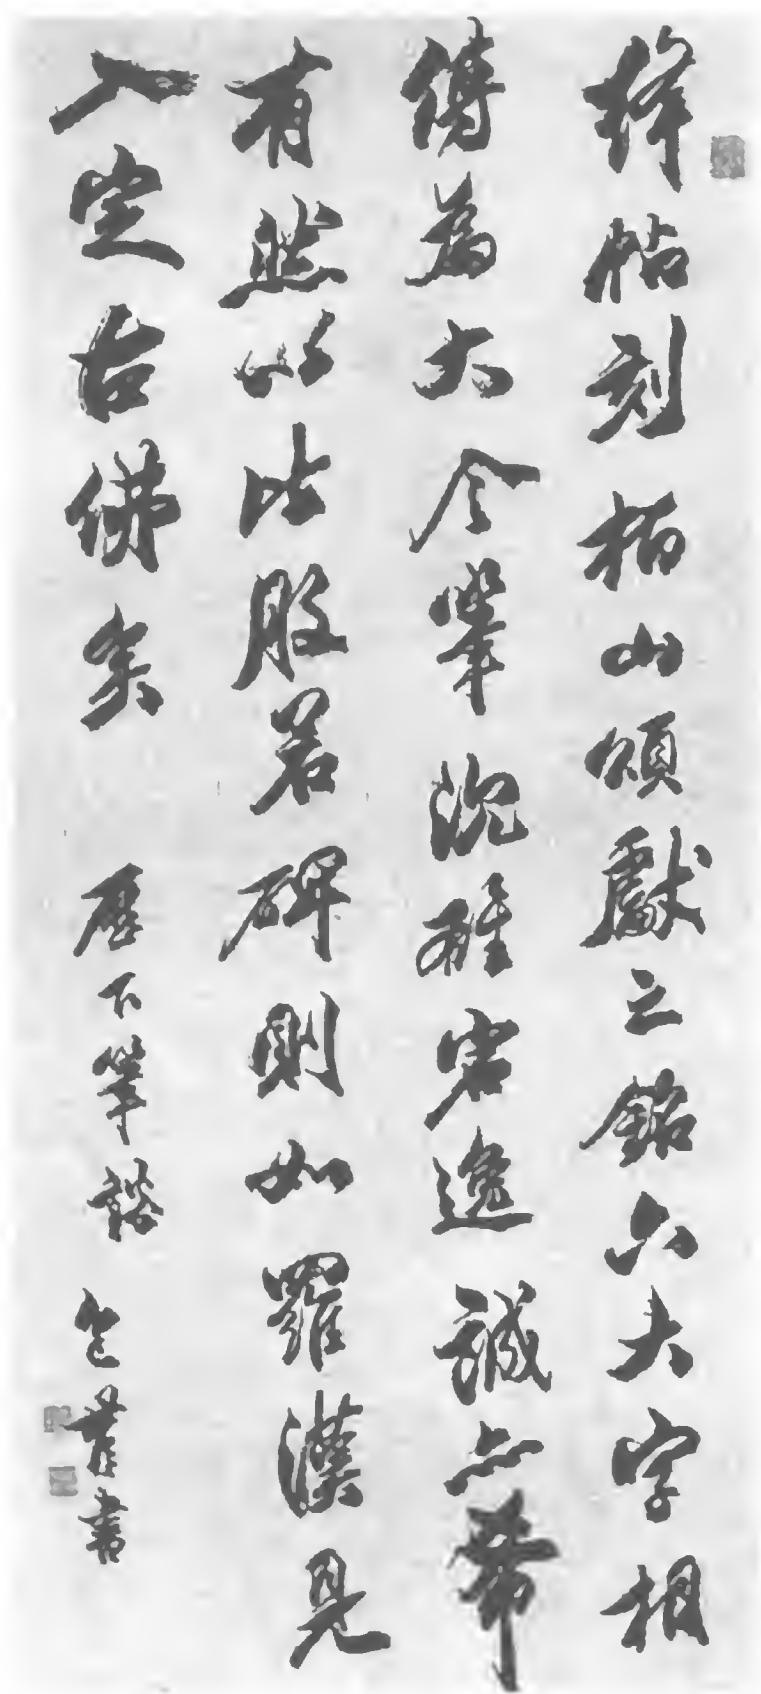 絳帖刻栢山頌獻之銘六大字相
傳為大令筆沉雄宕逸誠亦希
有然以比般若碑則如羅漢見
入定古佛矣 歷下筆談 包世臣書